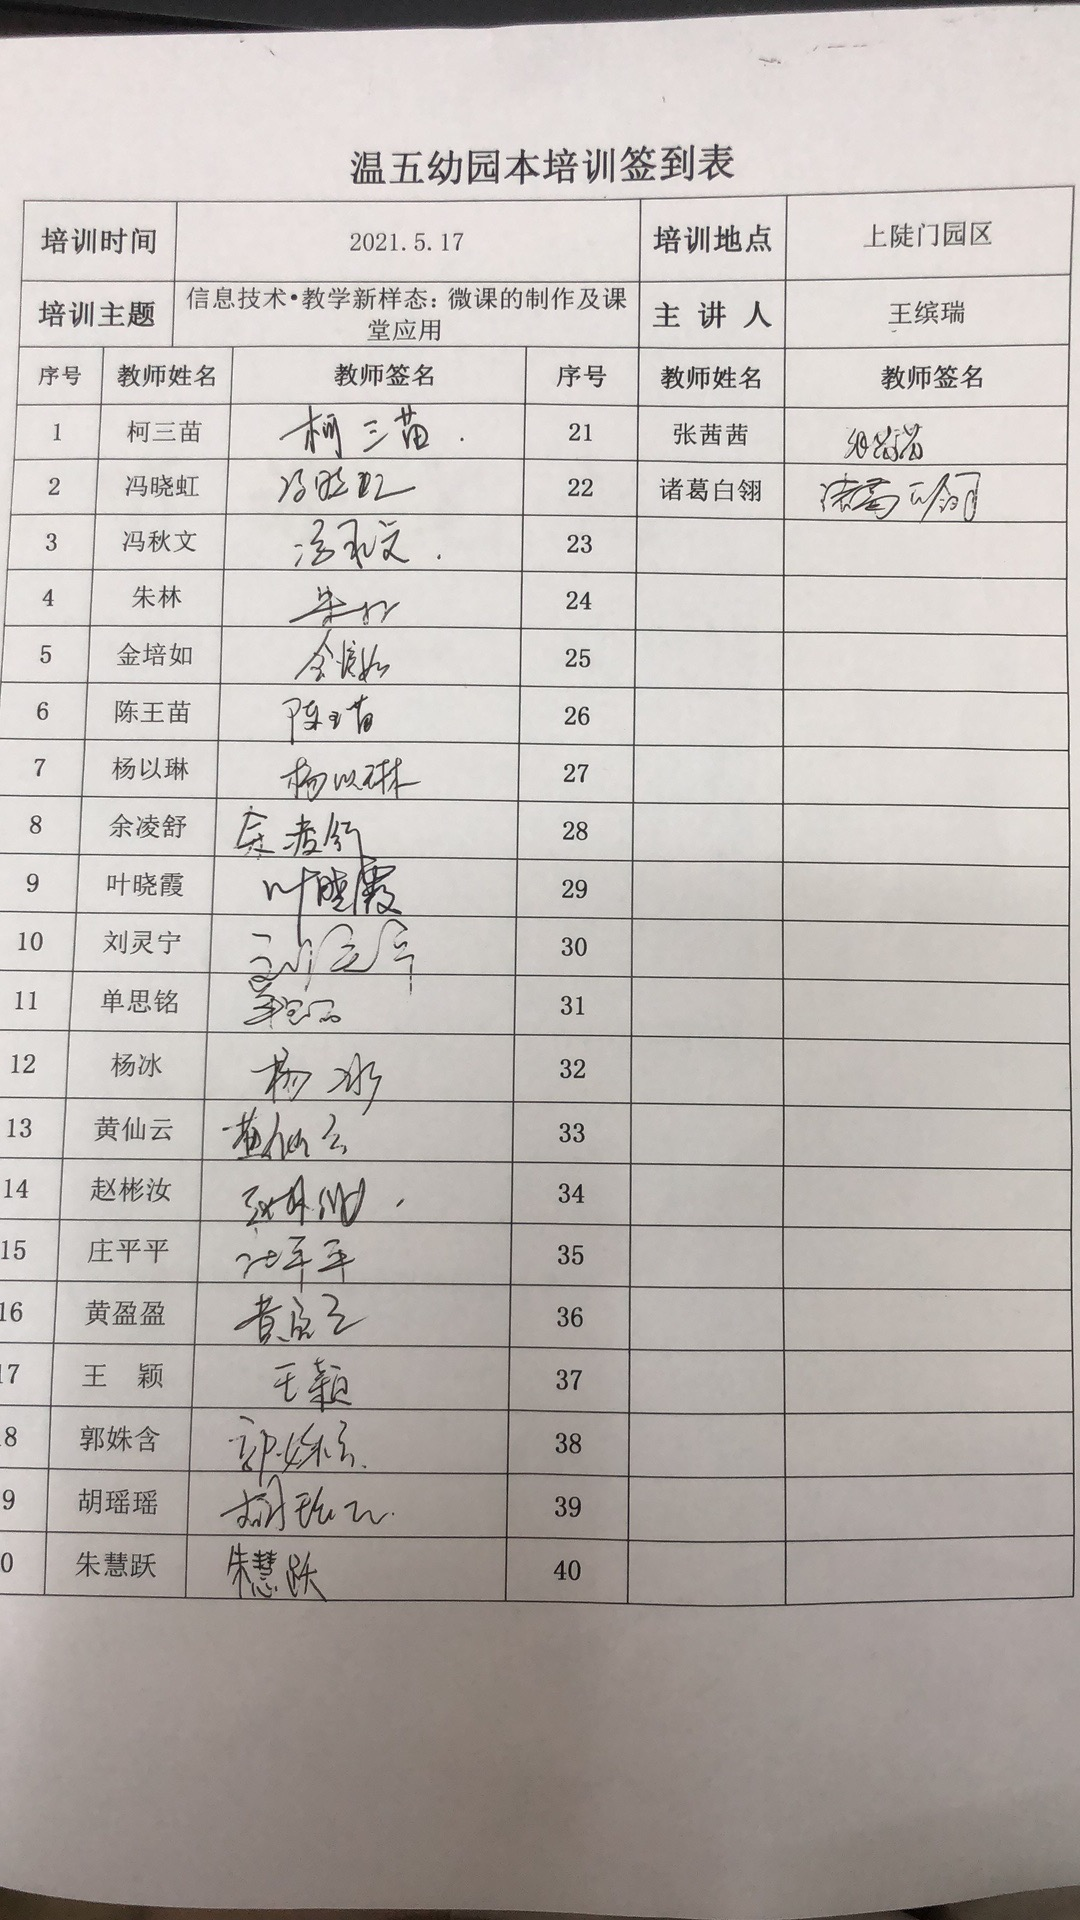 温五幼园本培训签到表
培训时间 2021.5.17 培训地点 上陡门园区
培训主题 信息技术•教学新样态：微课的制作及课
堂应用 主 讲 人 王缤瑞
序号 教师姓名 教师签名 序号 教师姓名 教师签名
1 柯三苗 柯三苗 21 张茜茜
2 冯晓虹 冯晓虹 22 诸葛白翎 诸葛白翎
3 冯秋文 冯秋文 23
4 朱林 朱林 24
5 金培如 金培如 25
6 陈王苗 陈王苗 26
7 杨以琳 杨以琳 27
8 余凌舒 余凌舒 28
9 叶晓霞 叶晓霞 29
10 刘灵宁 刘灵宁 30
11 单思铭 单思铭 31
12 杨冰 杨冰 32
13 黄仙云 黄仙云 33
14 赵彬汝 赵彬汝 34
15 庄平平 庄平平 35
16 黄盈盈 黄盈盈 36
17 王 颖 王颖 37
8 郭姝含 郭姝含 38
9 胡瑶瑶 胡瑶瑶 39
0 朱慧跃 朱慧跃 40